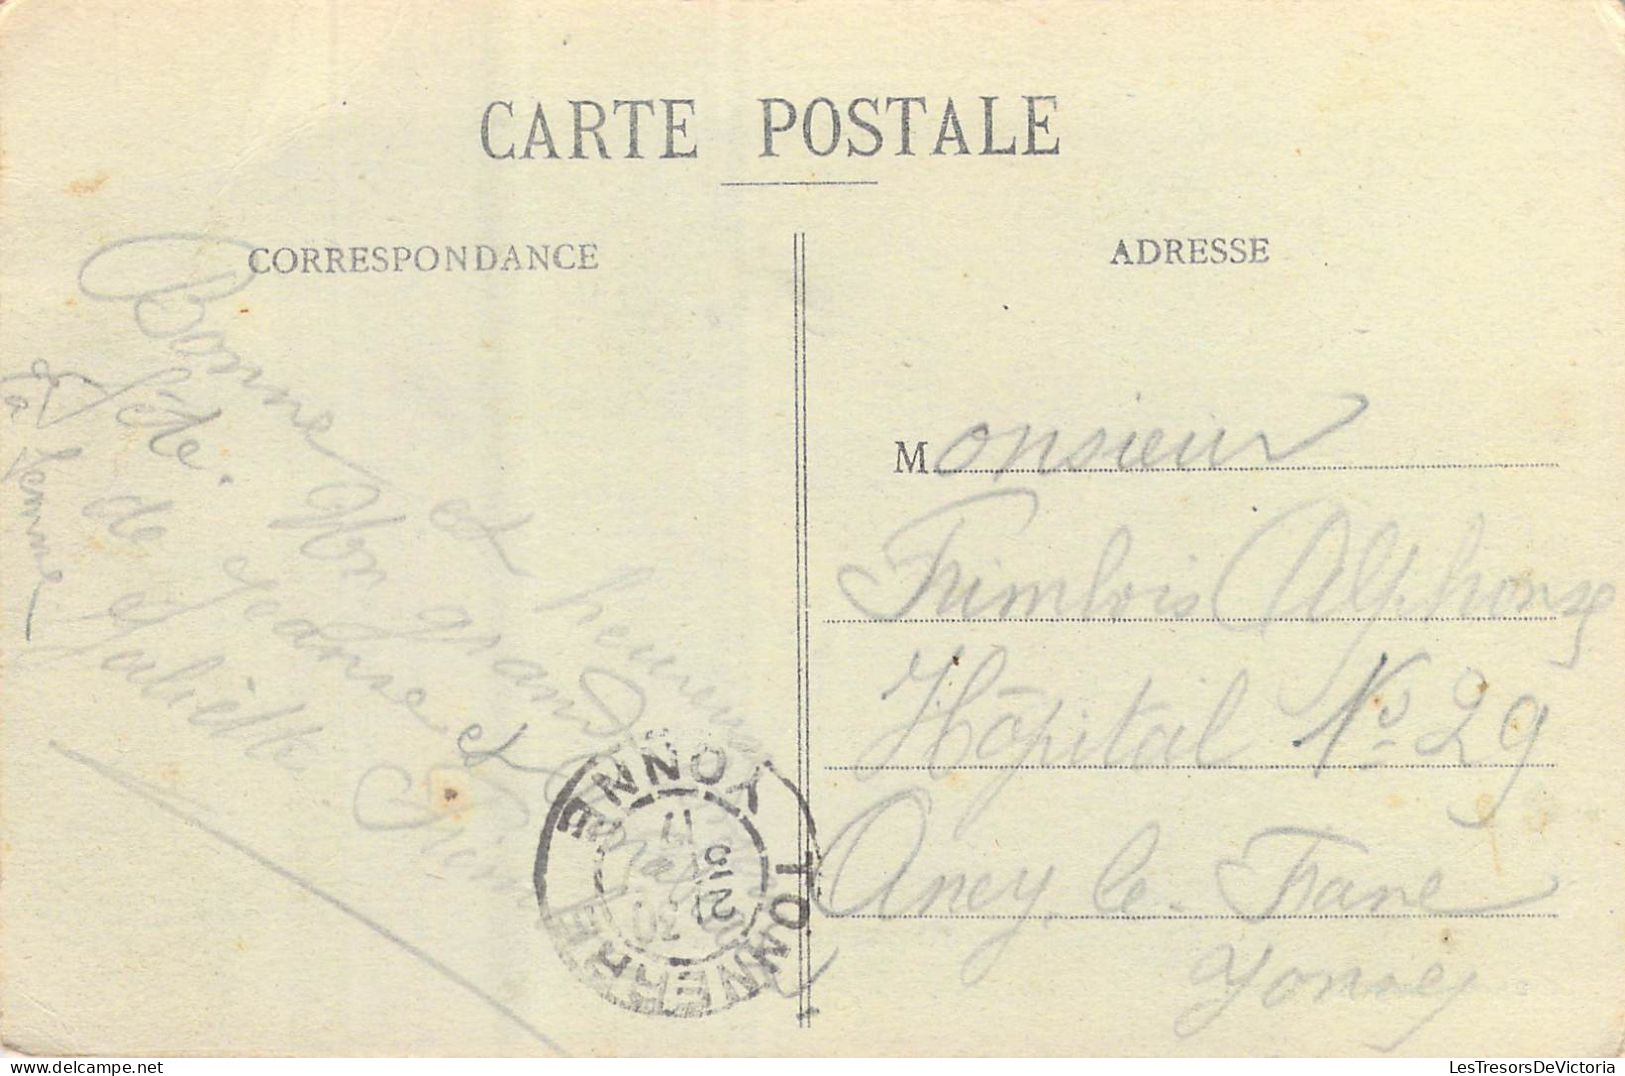 CARTE POSTALE
CORRESPONDANCE
ADRESSE
Bonne et heureuse
fête. Un grand
de Jeanne et
Juliette Frimbois
et
ta femme
Monsieur
Frimbois Alphonse
Hôpital No 29
Ancy-le-Franc
Yonne
TONNERRE
YONNE
LesTresorsDeVictoria